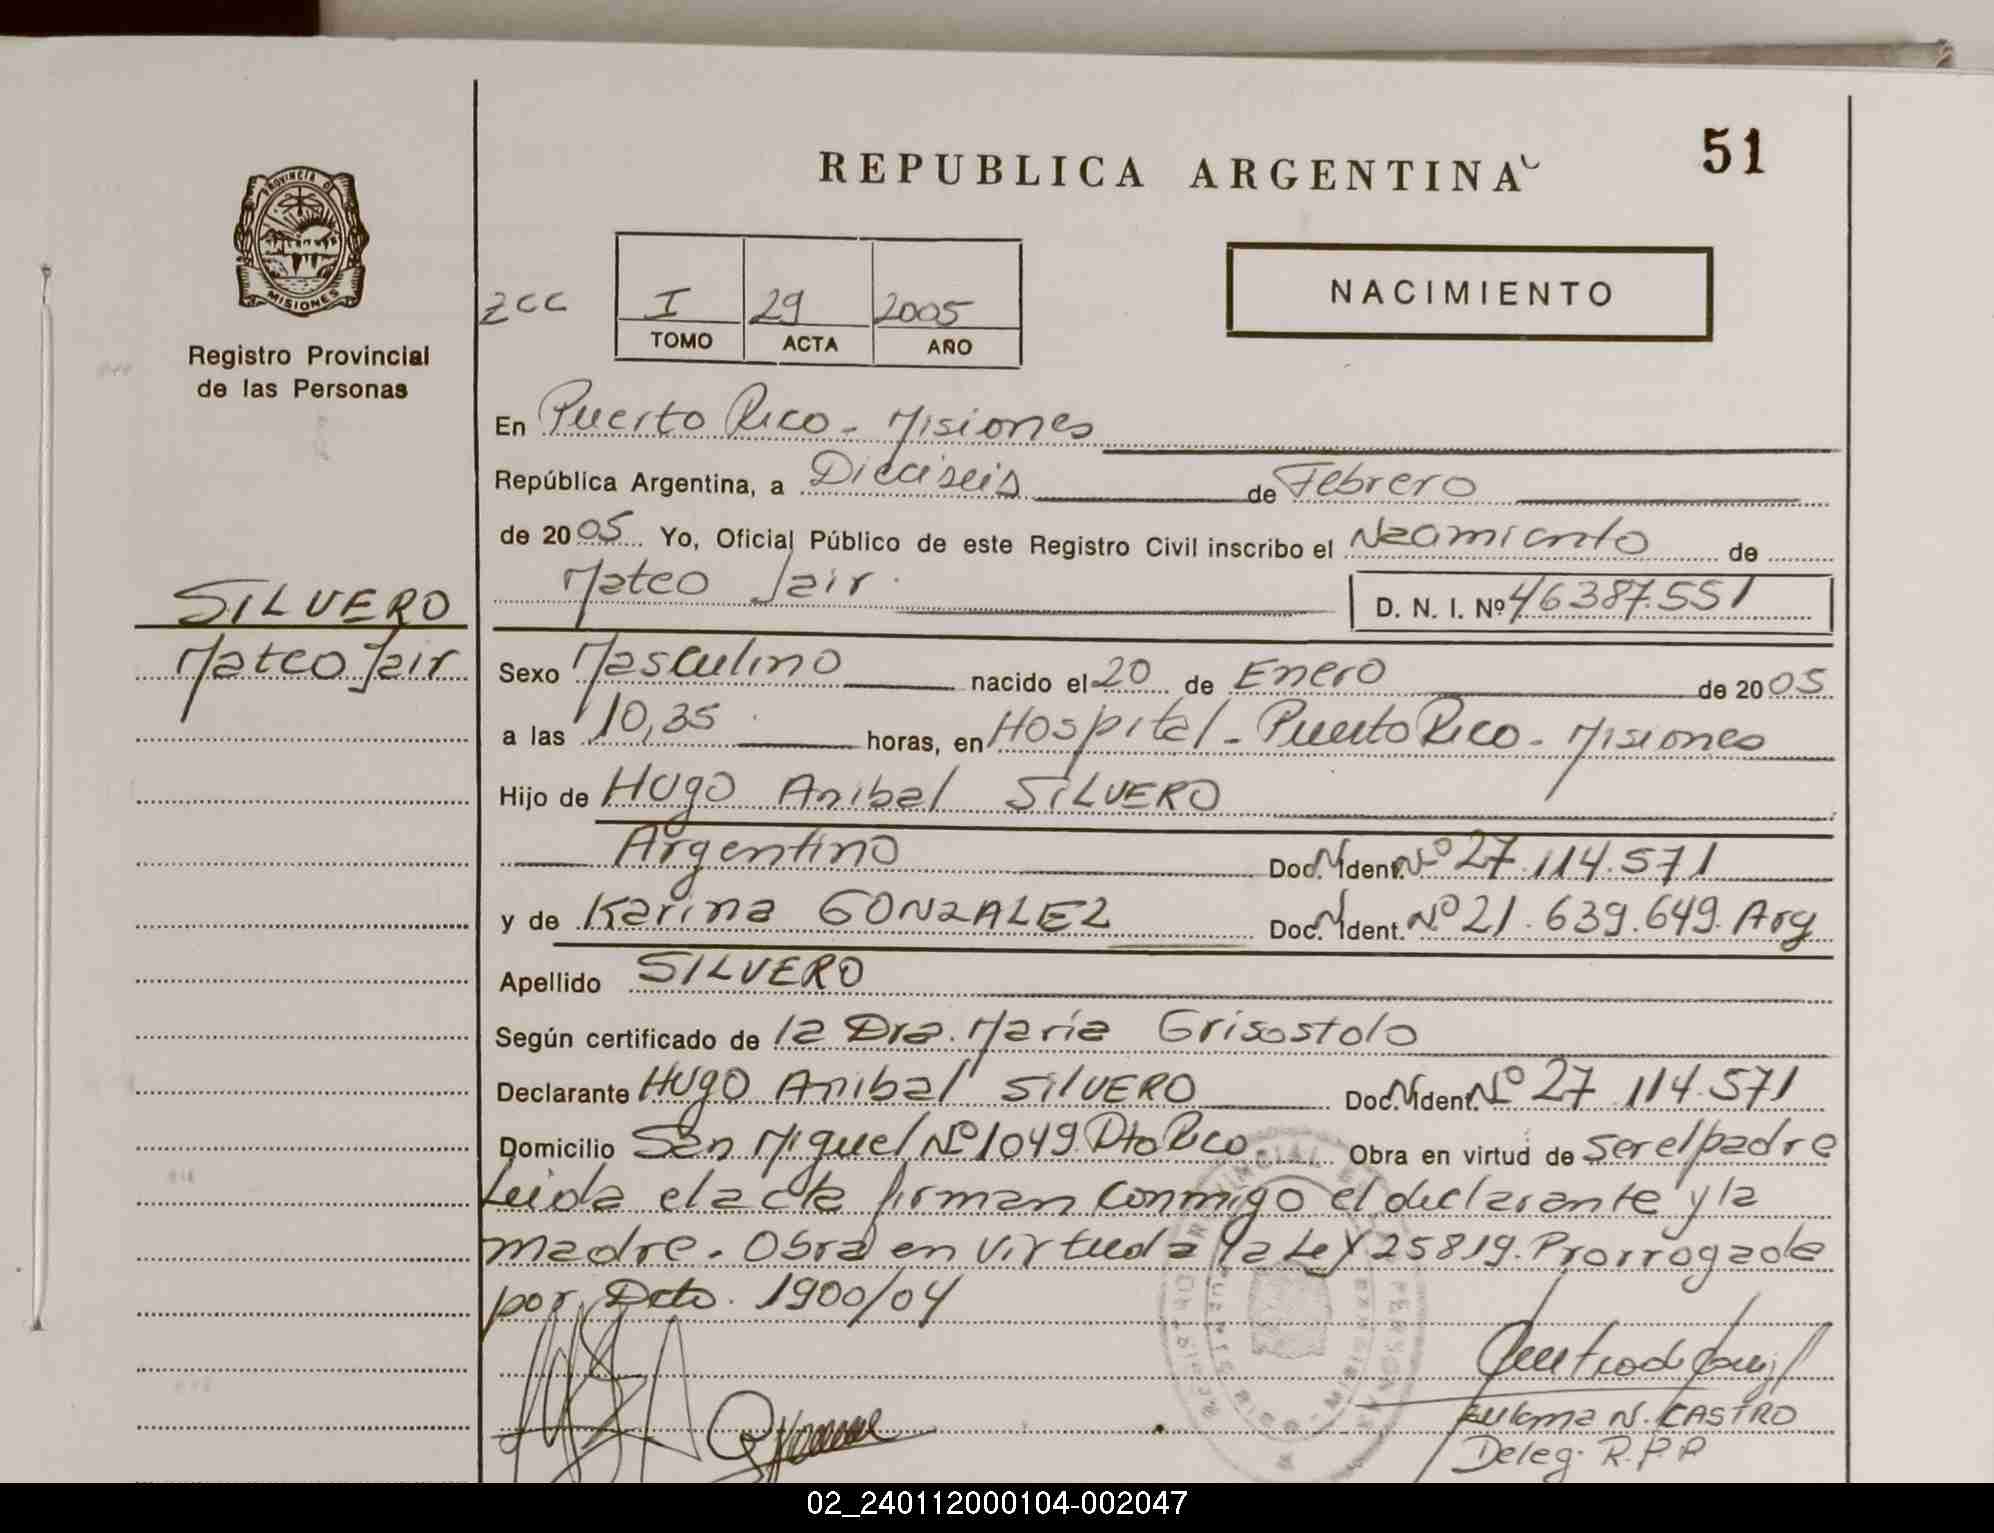 REPUBLICA ARGENTINA
51
PROVINCIA D
MISIONES
Registro Provincial
de las Personas
zcc
I 29 2005
TOMO ACTA AÑO
NACIMIENTO
En Puerto Rico - Misiones
República Argentina, a Dieciseis de Febrero
de 2005 Yo, Oficial Público de este Registro Civil inscribo el Nacimiento de
Mateo Jair D. N. I. Nº 46387.551
SILVERO
Mateo Jair
Sexo Masculino nacido el 20 de Enero de 2005
a las 10,35 horas, en Hospital - Puerto Rico - Misiones
Hijo de Hugo Anibal SILVERO
Argentino Doc. Ident. Nº 27.114.571
y de Karina GONZALEZ Doc. Ident. Nº 21.639.649. Arg
Apellido SILVERO
Según certificado de la Dra. Maria Grisostolo
Declarante Hugo Anibal SILVERO Doc. Ident. Nº 27 114.571
Domicilio San Miguel Nº 1049 Pto Rico Obra en virtud de ser el padre
Leida el acta firman conmigo el declarante y la
madre. Obra en virtud a la Ley 25819. Prorrogada
por Dcto. 1900/04
N. CASTRO
Deleg. R.P.P
02_240112000104-002047